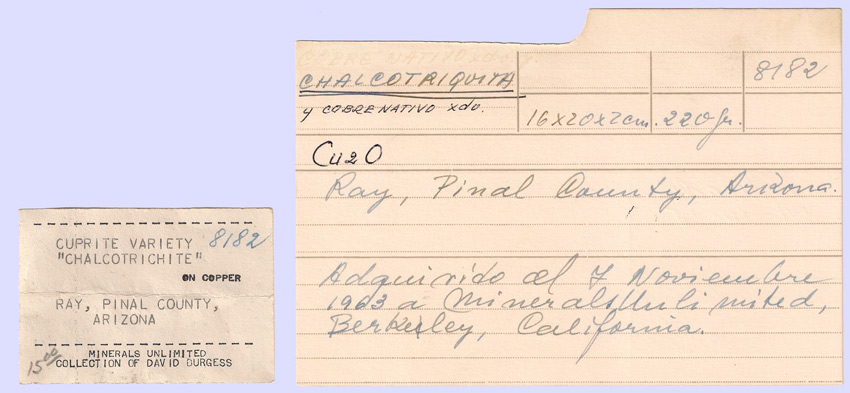 CUPRITE VARIETY 8182
"CHALCOTRICHITE"
ON COPPER
RAY, PINAL COUNTY,
ARIZONA
MINERALS UNLIMITED
COLLECTION OF DAVID BURGESS
15.00
COBRE NATIVO
CHALCOTRIQUITA
8182
y COBRE NATIVO xdo.
16x20x2cm. 220gr.
Cu2O
Ray, Pinal County, Arizona.
Adquirido el 7 Noviembre
1963 a Minerals Unlimited,
Berkeley, California.